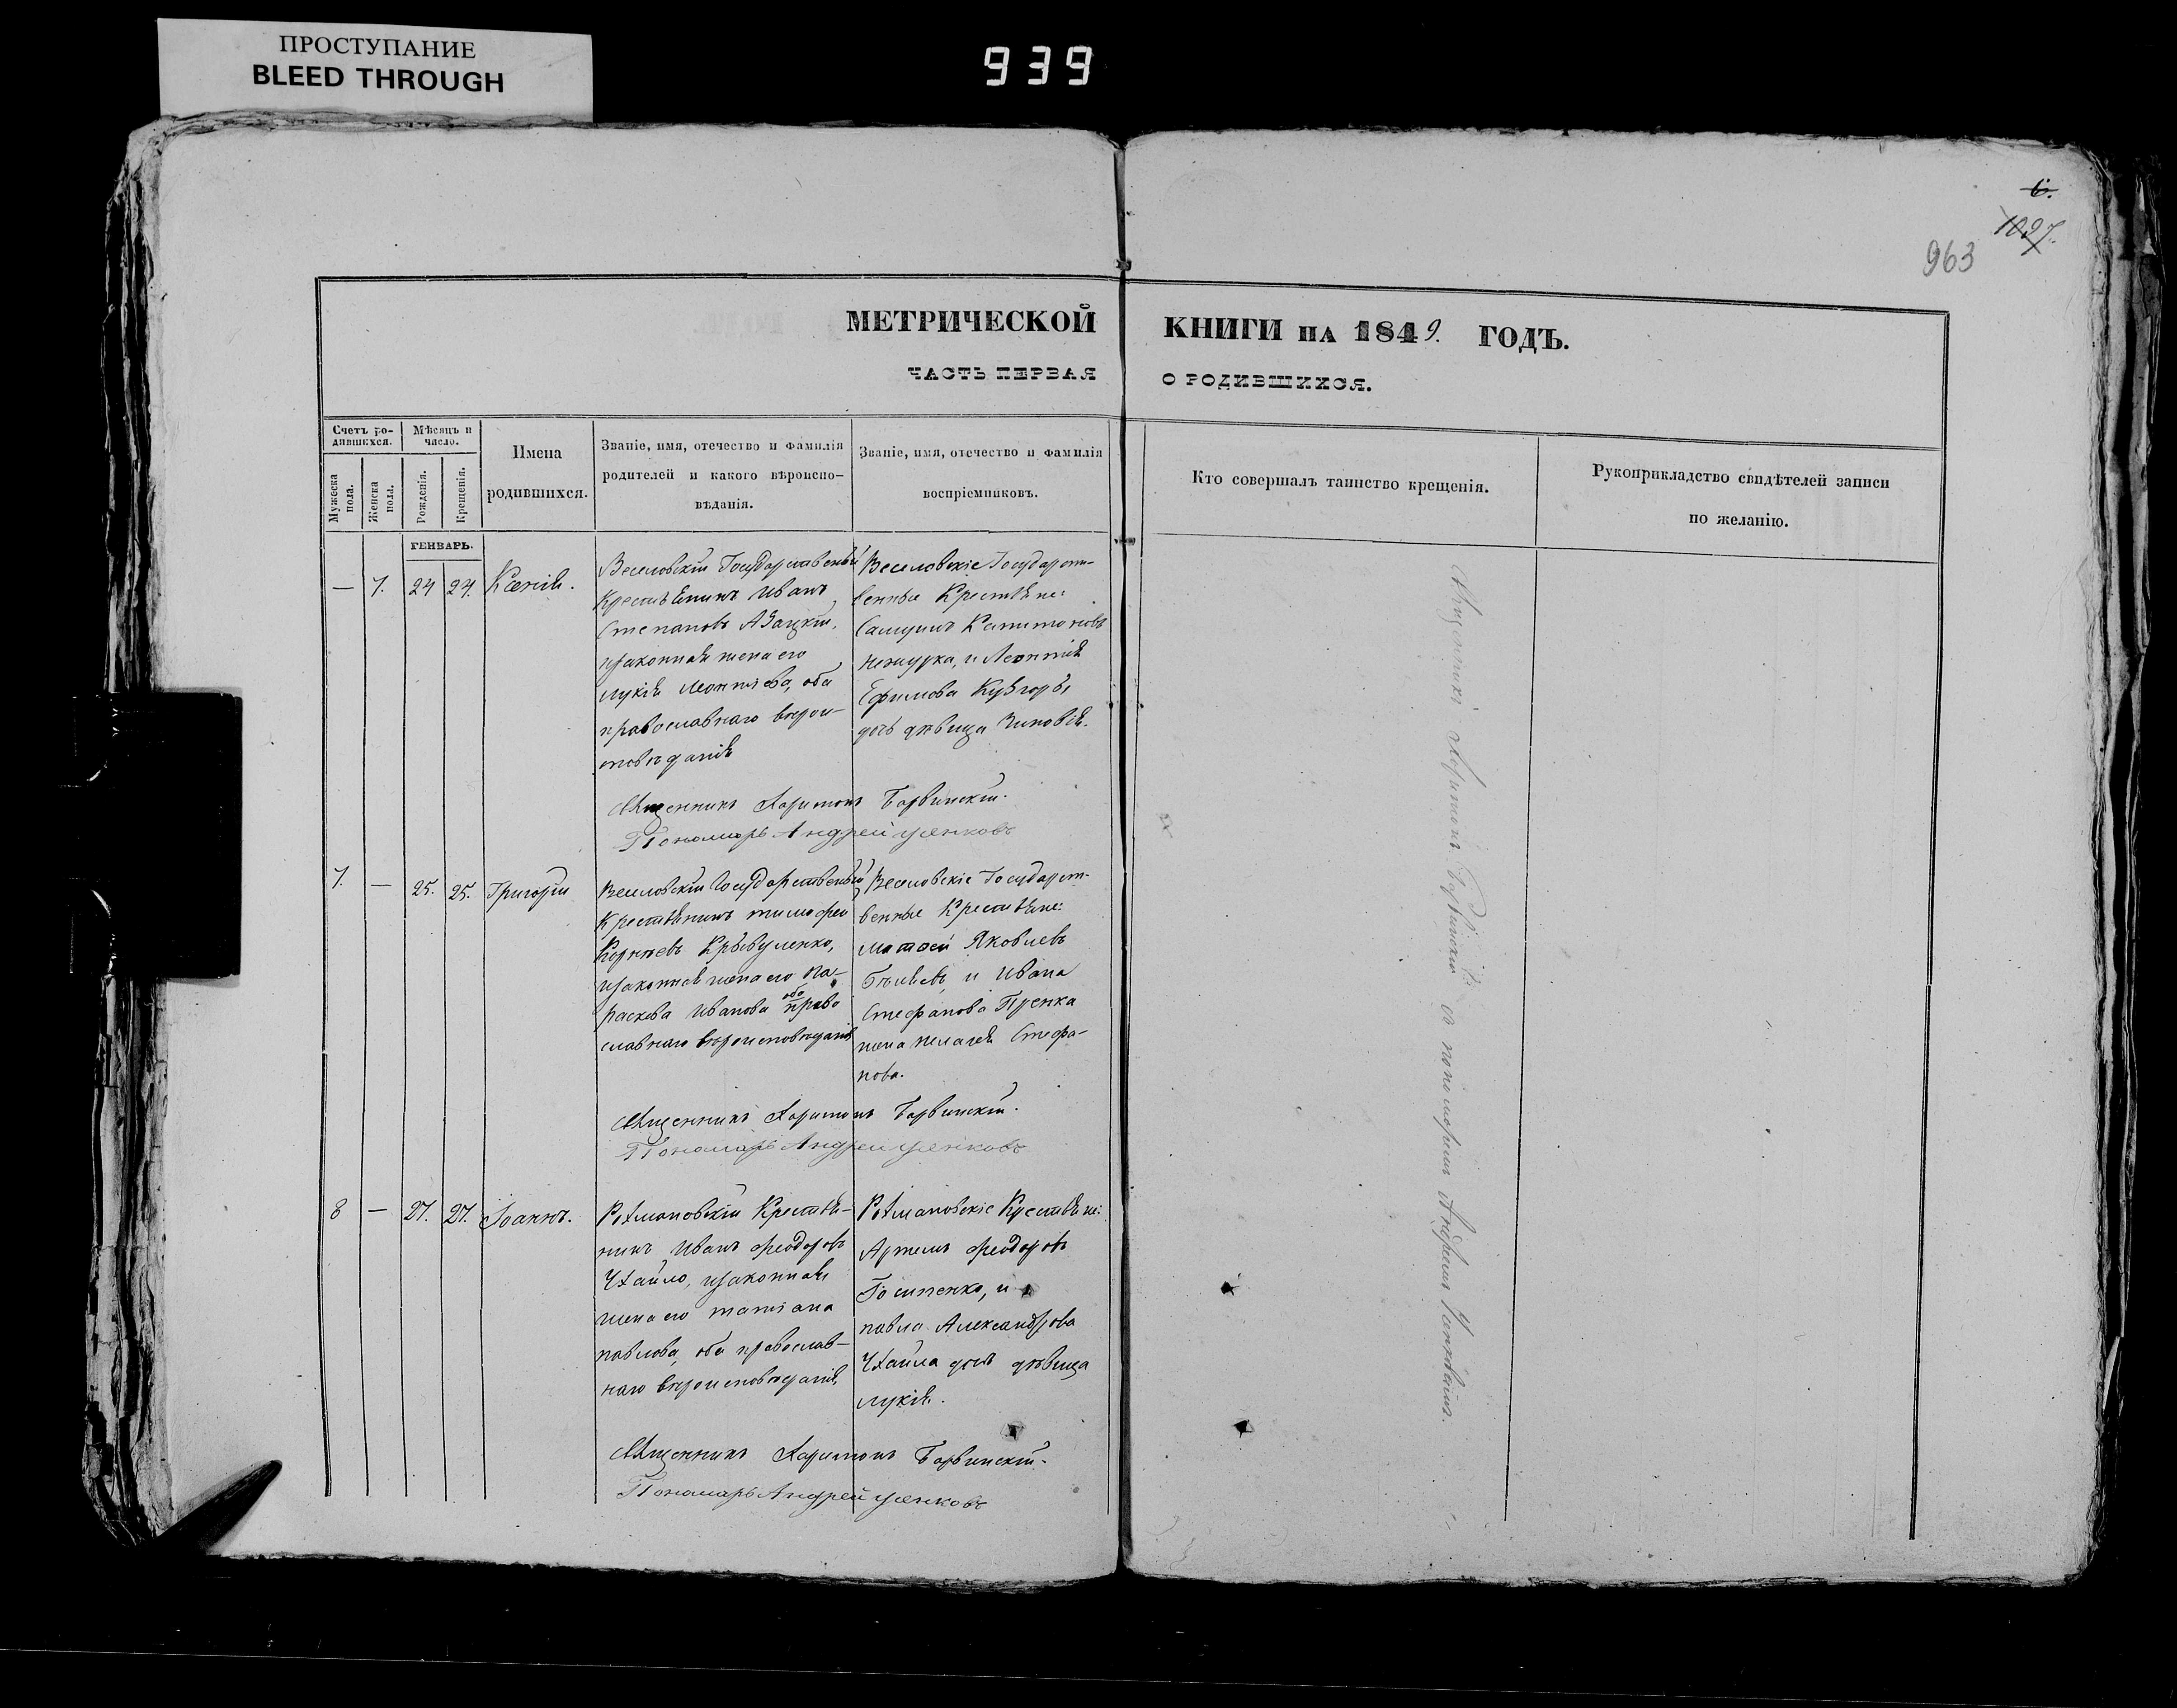 ПРОСТУПАНИЕ
BLEED THROUGH
939
6.
1027.
963
МЕТРИЧЕСКОЙ КНИГИ НА 1849. ГОДЪ.
ЧАСТЬ ПЕРВАЯ О РОДИВШИХСЯ.
Счетъ ро-
дившихся.
Мужеска
пола.
Женска
пола.
Мѣсяцъ и
число.
Рожденія.
Крещенія.
Имена
родившихся.
Званіе, имя, отечество и фамилія
родителей и какого вѣроиспо-
вѣданія.
Званіе, имя, отечество и фамилія
воспріемниковъ.
Кто совершалъ таинство крещенія.
Рукоприкладство свидѣтелей записи
по желанію.
ГЕНВАРЬ.
— 7. 24 24. Ксенія.
Веселовскій Государственный
Крестьянинъ Иванъ
Степановъ
изаконная жена его
лукія Леонтіева, оба
православнаго вѣрои-
споведанія
Веселовскіе Государст-
венные Крестьяне:
Самуилъ Капитоновъ
и
Ефимова
дочь дѣвица Зиновія.
Священникъ Харитонъ Барвинскій.
Пономарь Андрей Уенковъ
7. — 25. 25. Григорій
Веселовскій Государственный
Крестьянинъ тимофей
Корнѣевъ Крывуленко,
изаконная жена его Па-
раскева Иванова оба право
славнаго вѣроисповеданія
Веселовскіе Государст-
венные Крестьяне:
Матвей Яковлевъ
и Ивана
Стефанова
жена пелагея Стефа-
нова.
Священникъ Харитонъ Барвинскій.
Пономарь Андрей Уенковъ
8 — 27. 27. Іоаннъ.
Рахмановскій Крестья-
нинъ Иванъ феодоровъ
Чхайло, изаконная
жена его татіана
павлова, оба православ-
наго вѣроисповеданія,
Рахмановскіе Крестьяне:
Артемъ феодоровъ
и
павла Александрова
Чхайла дочь дѣвица
лукія.
Священникъ Харитонъ Барвинскій.
Пономарь Андрей Уенковъ
Священникъ Харитонъ Барвинскій со пономаремъ Андреемъ Уенковымъ.